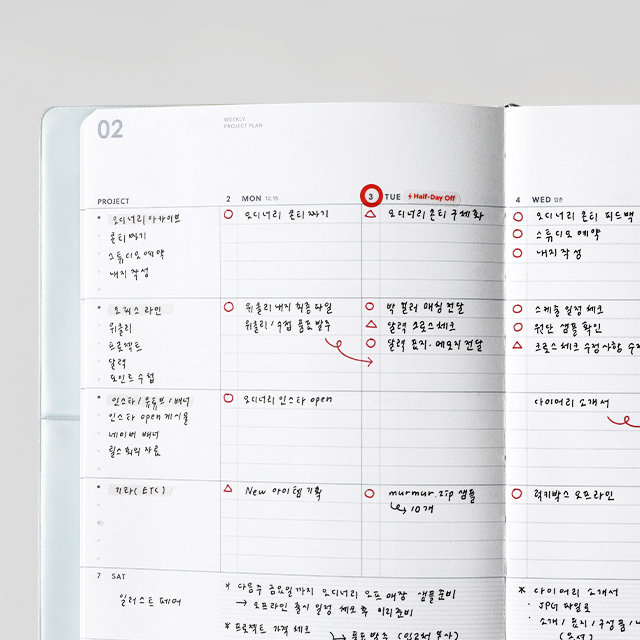 02
WEEKLY
PROJECT PLAN
PROJECT
2 MON 12.15
3 TUE Half-Day Off
4 WED
오디너리 아카이브
콘티 짜기
스튜디오 예약
내지 작성
오디너리 콘티 짜기
오디너리 콘티 구체화
오디너리 콘티 피드백
스튜디오 예약
내지 작성
오피스 라인
위클리
프로젝트
달력
포인트 수첩
위클리 내지 최종 파일
위클리/수첩 품표 발주
박 컬러 매칭 전달
달력 크로스체크
달력 표지·메모지 전달
스케줄 일정 체크
원단 샘플 확인
크로스체크 수정사항 수
인스타/유튜브/배너
인스타 open 게시물
네이버 배너
릴스 회의 자료
오디너리 인스타 open
다이어리 소개서
기타(ETC)
New 아이템 기획
murmur.zip 샘플
10개
럭키박스 오프라인
7 SAT
일러스트 페어
* 다음주 금요일까지 오디너리 오프 매장 샘플준비
→ 오프라인 출시 일정 체크 후 미리준비
* 프로젝트 가격 체크
* 다이어리 소개서
· JPG 파일로
· 소개/표지/구성품/